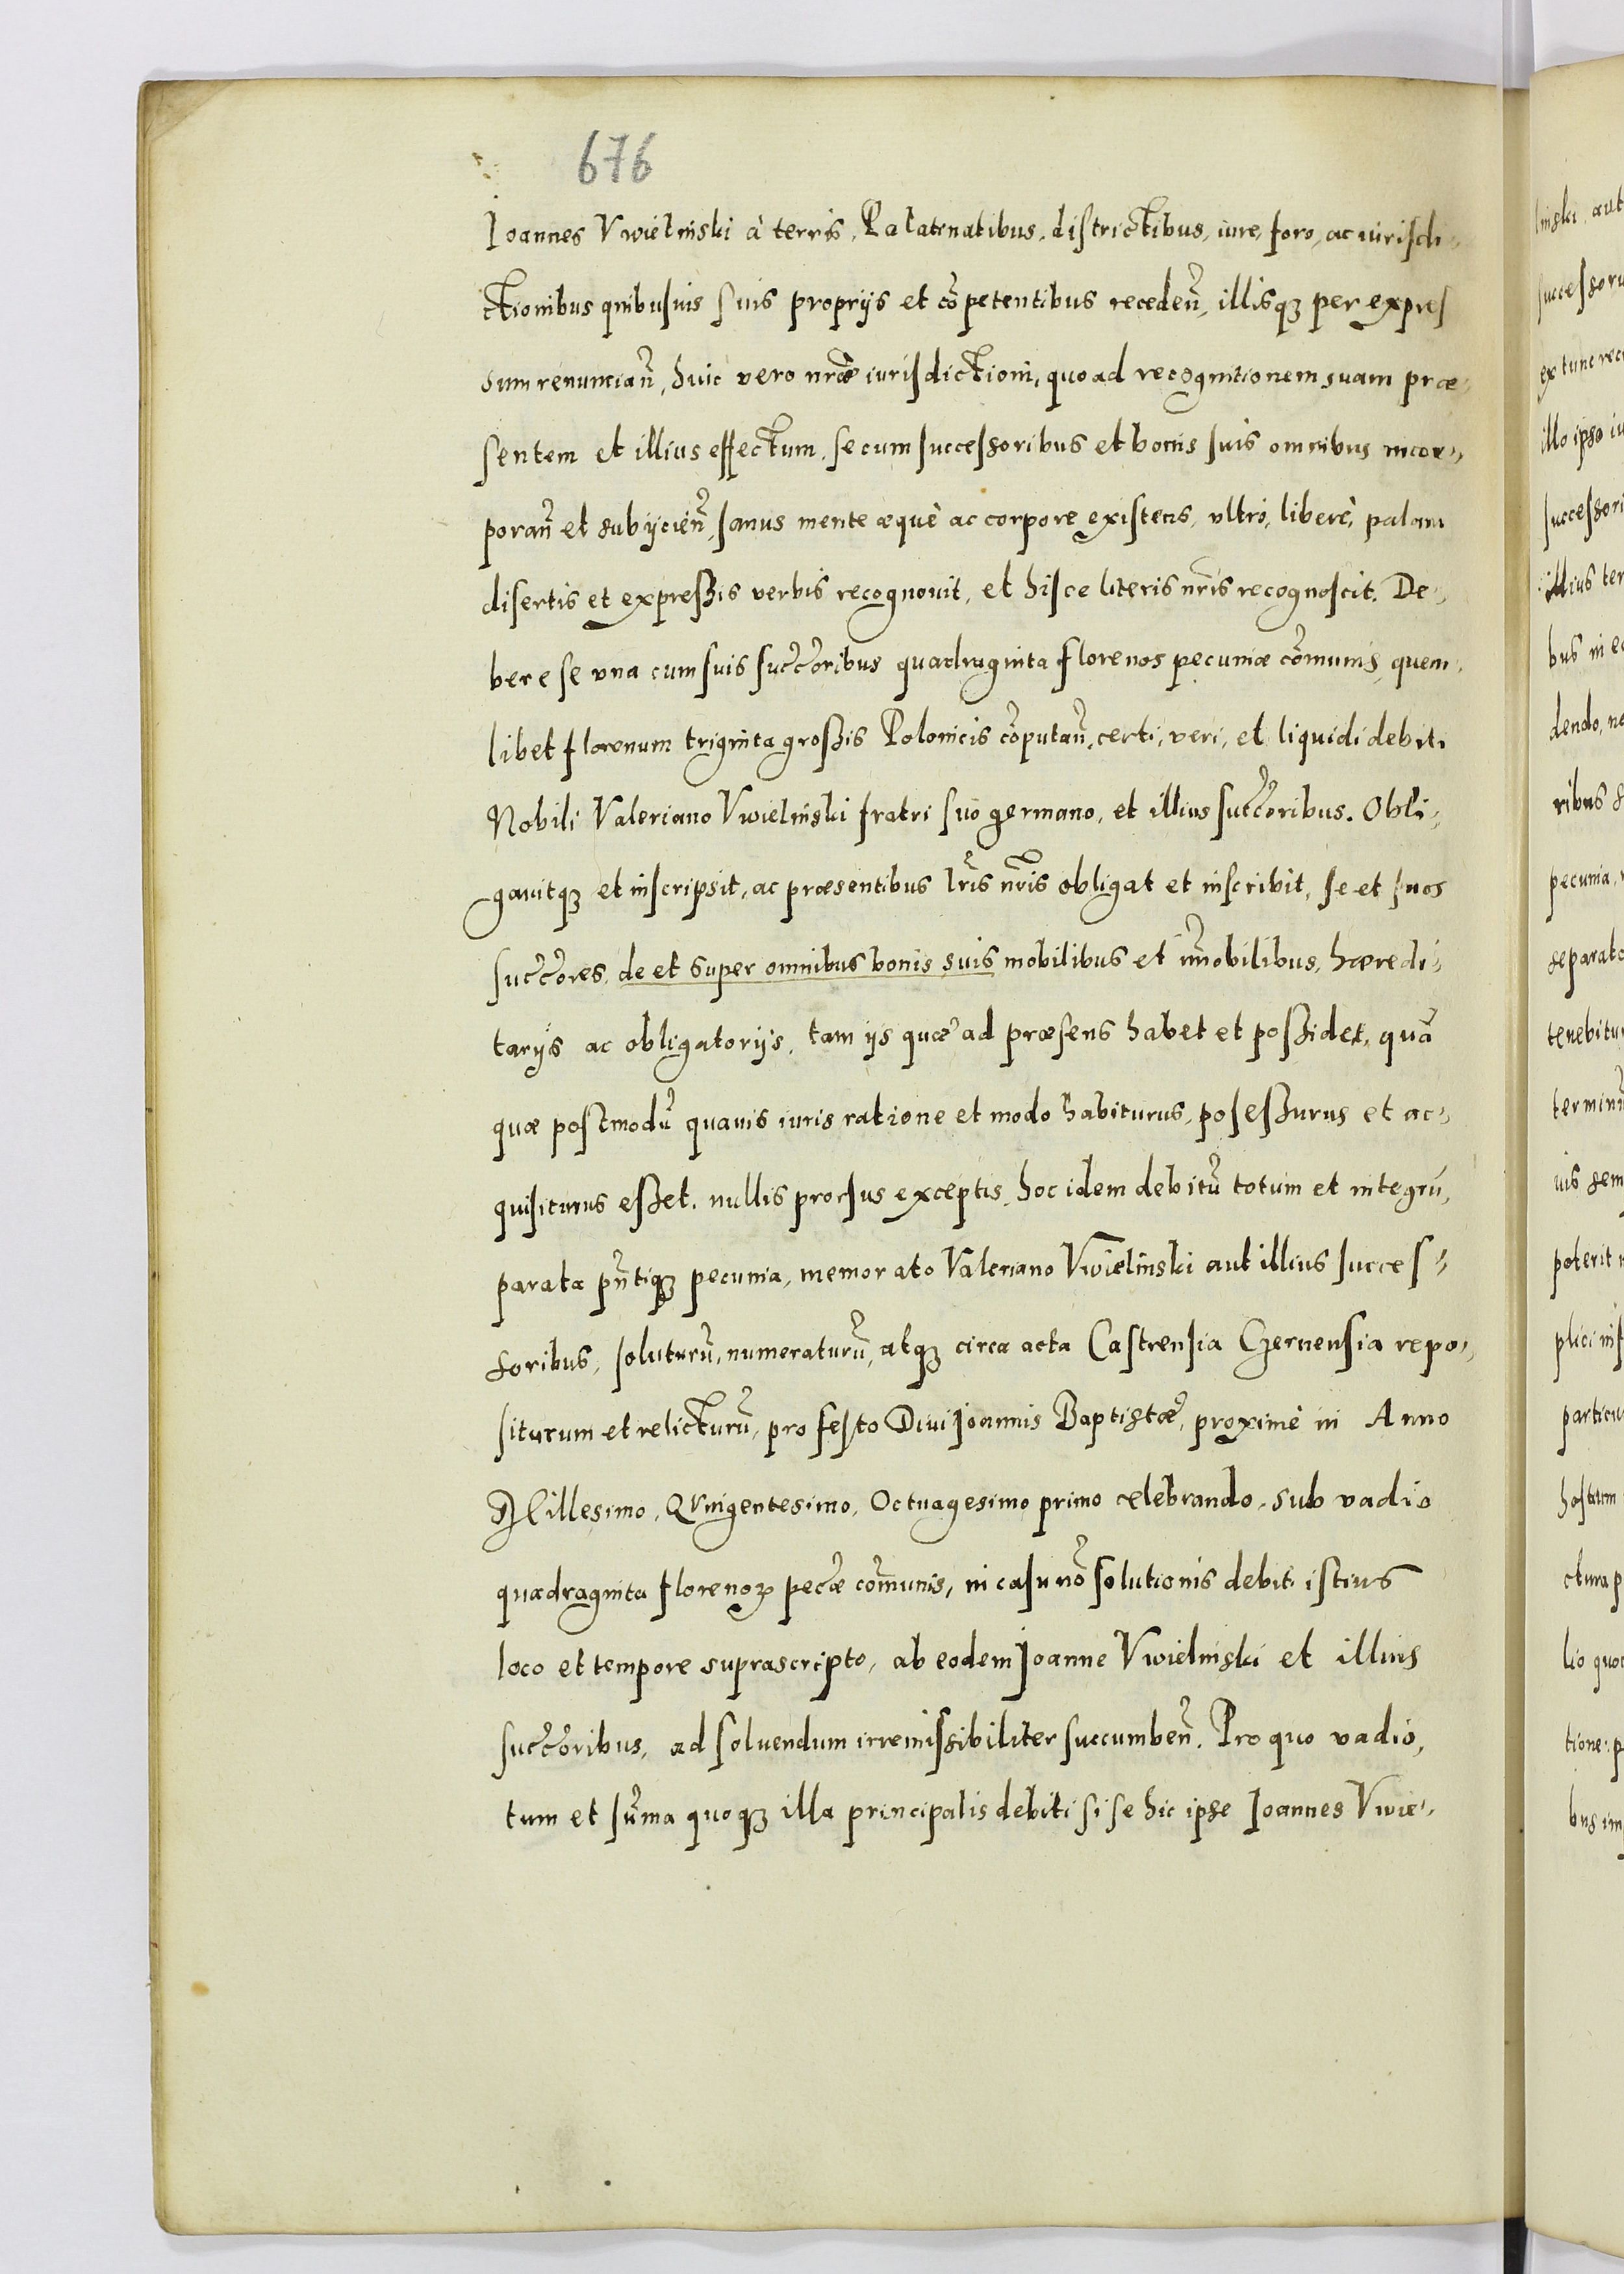 676
Ioannes Vwielinski à terris, Palatinatibus, districtibus, iure, foro, ac iurisdi-
ctionibus quibusuis suis proprijs et cõpetentibus recedeñ, illisqȝ per expres
sum renunciañ, huic vero nr̃æ iurisdictioni, quoad recognitionem suam præ-
sentem et illius effectum, se cum successoribus et bonis suis omnibus incor-
porañ et subijcieñ, sanus mente æquè ac corpore existens, vltrò, liberè, palam
disertis et expressis verbis recognouit, et hisce literis nr̃is recognoscit. De-
bere se vna cum suis succ̃oribus quadraginta florenos pecuniæ cõmunis, quem-
libet florenum triginta grossis Polonicis cõputañ, certi, veri, et liquidi debiti
Nobili Valeriano Vwielinski fratri suo germano, et illius succ̃oribus. Obli-
gauitqȝ et inscripsit, ac præsentibus lr̃is nr̃is obligat et inscribit, se et suos
succ̃ores, de et super omnibus bonis suis mobilibus et im̃obilibus, hæredi-
tarijs ac obligatorijs, tam ijs quæ ad præsens habet et possidet, quã
quæ postmodũ quauis iuris ratione et modo habiturus, posessurus et ac-
quisiturus esset, nullis prorsus exceptis, hoc idem debitũ totum et integrũ,
parata pñtiqȝ pecunia, memorato Valeriano Vwielinski aut illius succes-
soribus, soluturũ, numeraturũ, atqȝ circa acta Castrensia Czernensia repo-
siturum et relicturũ, pro festo Diui Ioannis Baptistæ, proximè in Anno
Millesimo, Quingentesimo, Octuagesimo primo celebrando, sub vadio
quadraginta florenoꝝ pec̃æ cõmunis, in casu nõ solutionis debiti istius
loco et tempore suprascripto, ab eodem Ioanne Vwielinski et illius
succ̃oribus, ad soluendum irremissibiliter succumbeñ. Pro quo vadio,
tum et sum̃a quoqȝ illa principalis debiti si se hic ipse Ioannes Vwie-
linski aut
ex tunc rec
illo ipso iu
illius ter
dendo, ne
ribus s
pecunia,
separato
tenebitur
uis sem
poterit
ctura p
lio quo
tione: p
bus im